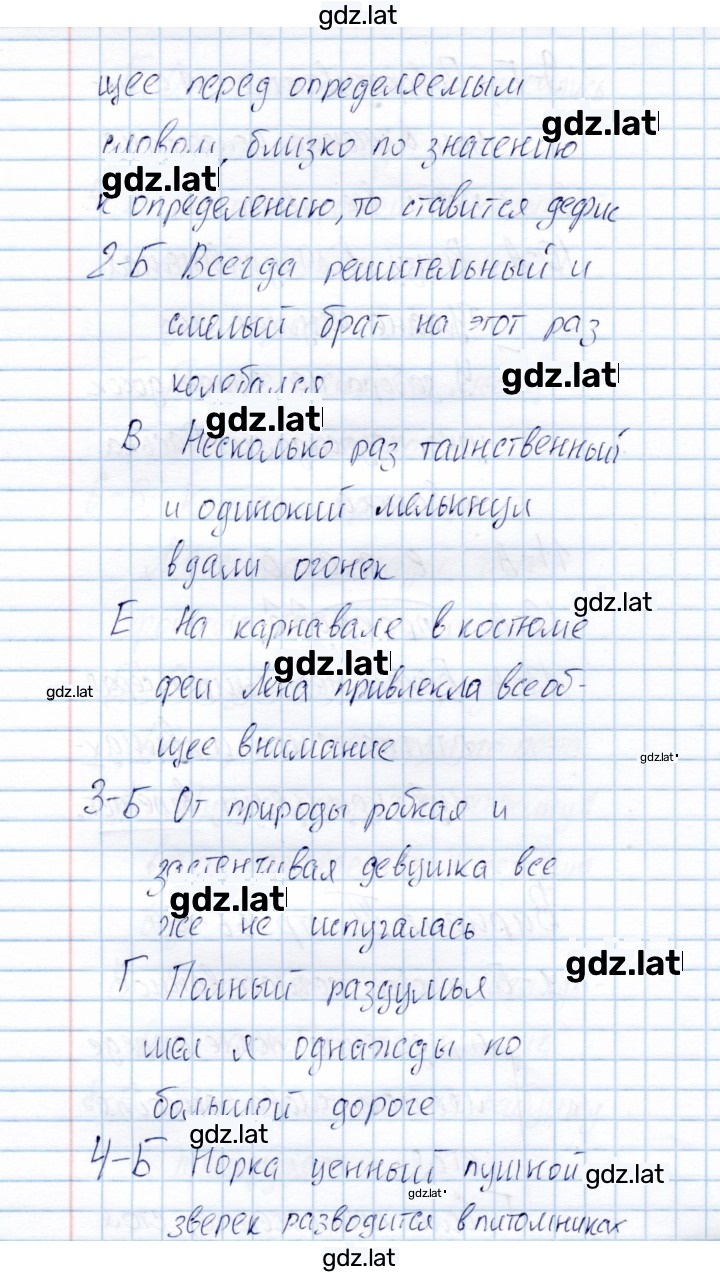 gdz.lat
щее перед определяемым
gdz.lat
словом, близко по значению
gdz.lat
к определению, то ставится дефис
2-Б Всегда решительный и
смелый брат на этот раз
gdz.lat
колебался
gdz.lat
В Несколько раз таинственный
и одинокий мелькнул
вдали огонек
gdz.lat
Е На карнавале в костюме
gdz.lat
gdz.lat
феи Лена привлекла всеоб-
щее внимание
gdz.lat
3-Б От природы робкая и
застенчивая девушка все
gdz.lat
же не испугалась
gdz.lat
Г Полный раздумья
шел я однажды по
большой дороге
gdz.lat
4-Б Норка ценный пушной
gdz.lat
gdz.lat
зверек разводится в питомниках
gdz.lat